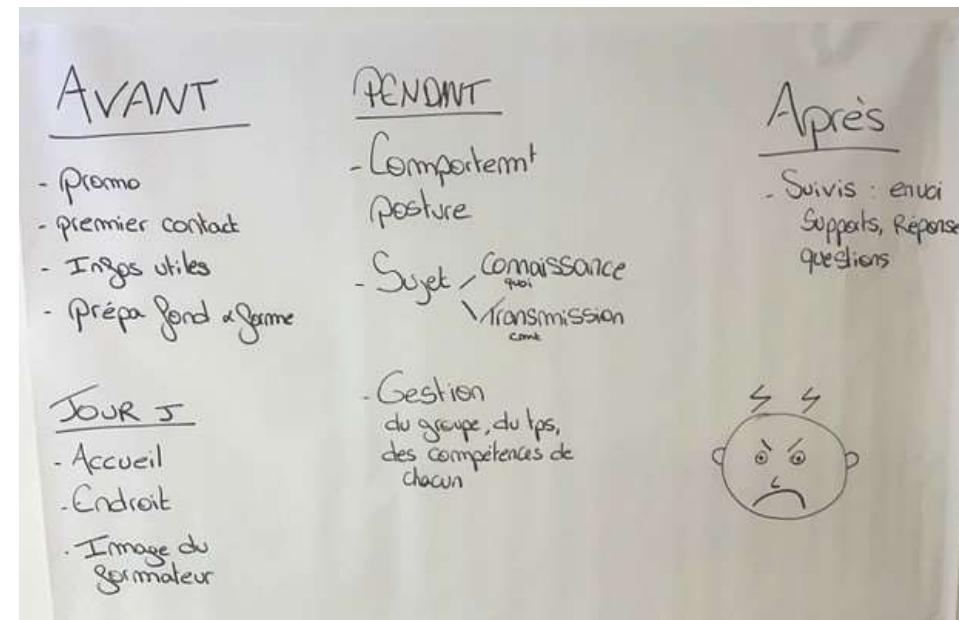 AVANT
- promo
- premier contact
- Infos utiles
- Prépa fond & forme
JOUR J
- Accueil
- Endroit
- Image du
formateur
PENDANT
- Comportemt
posture
- Sujet
Connaissance
quoi
Transmission
comt
- Gestion
du groupe, du tps,
des compétences de
chacun
Après
- Suivis : envoi
Supports, Réponse
questions